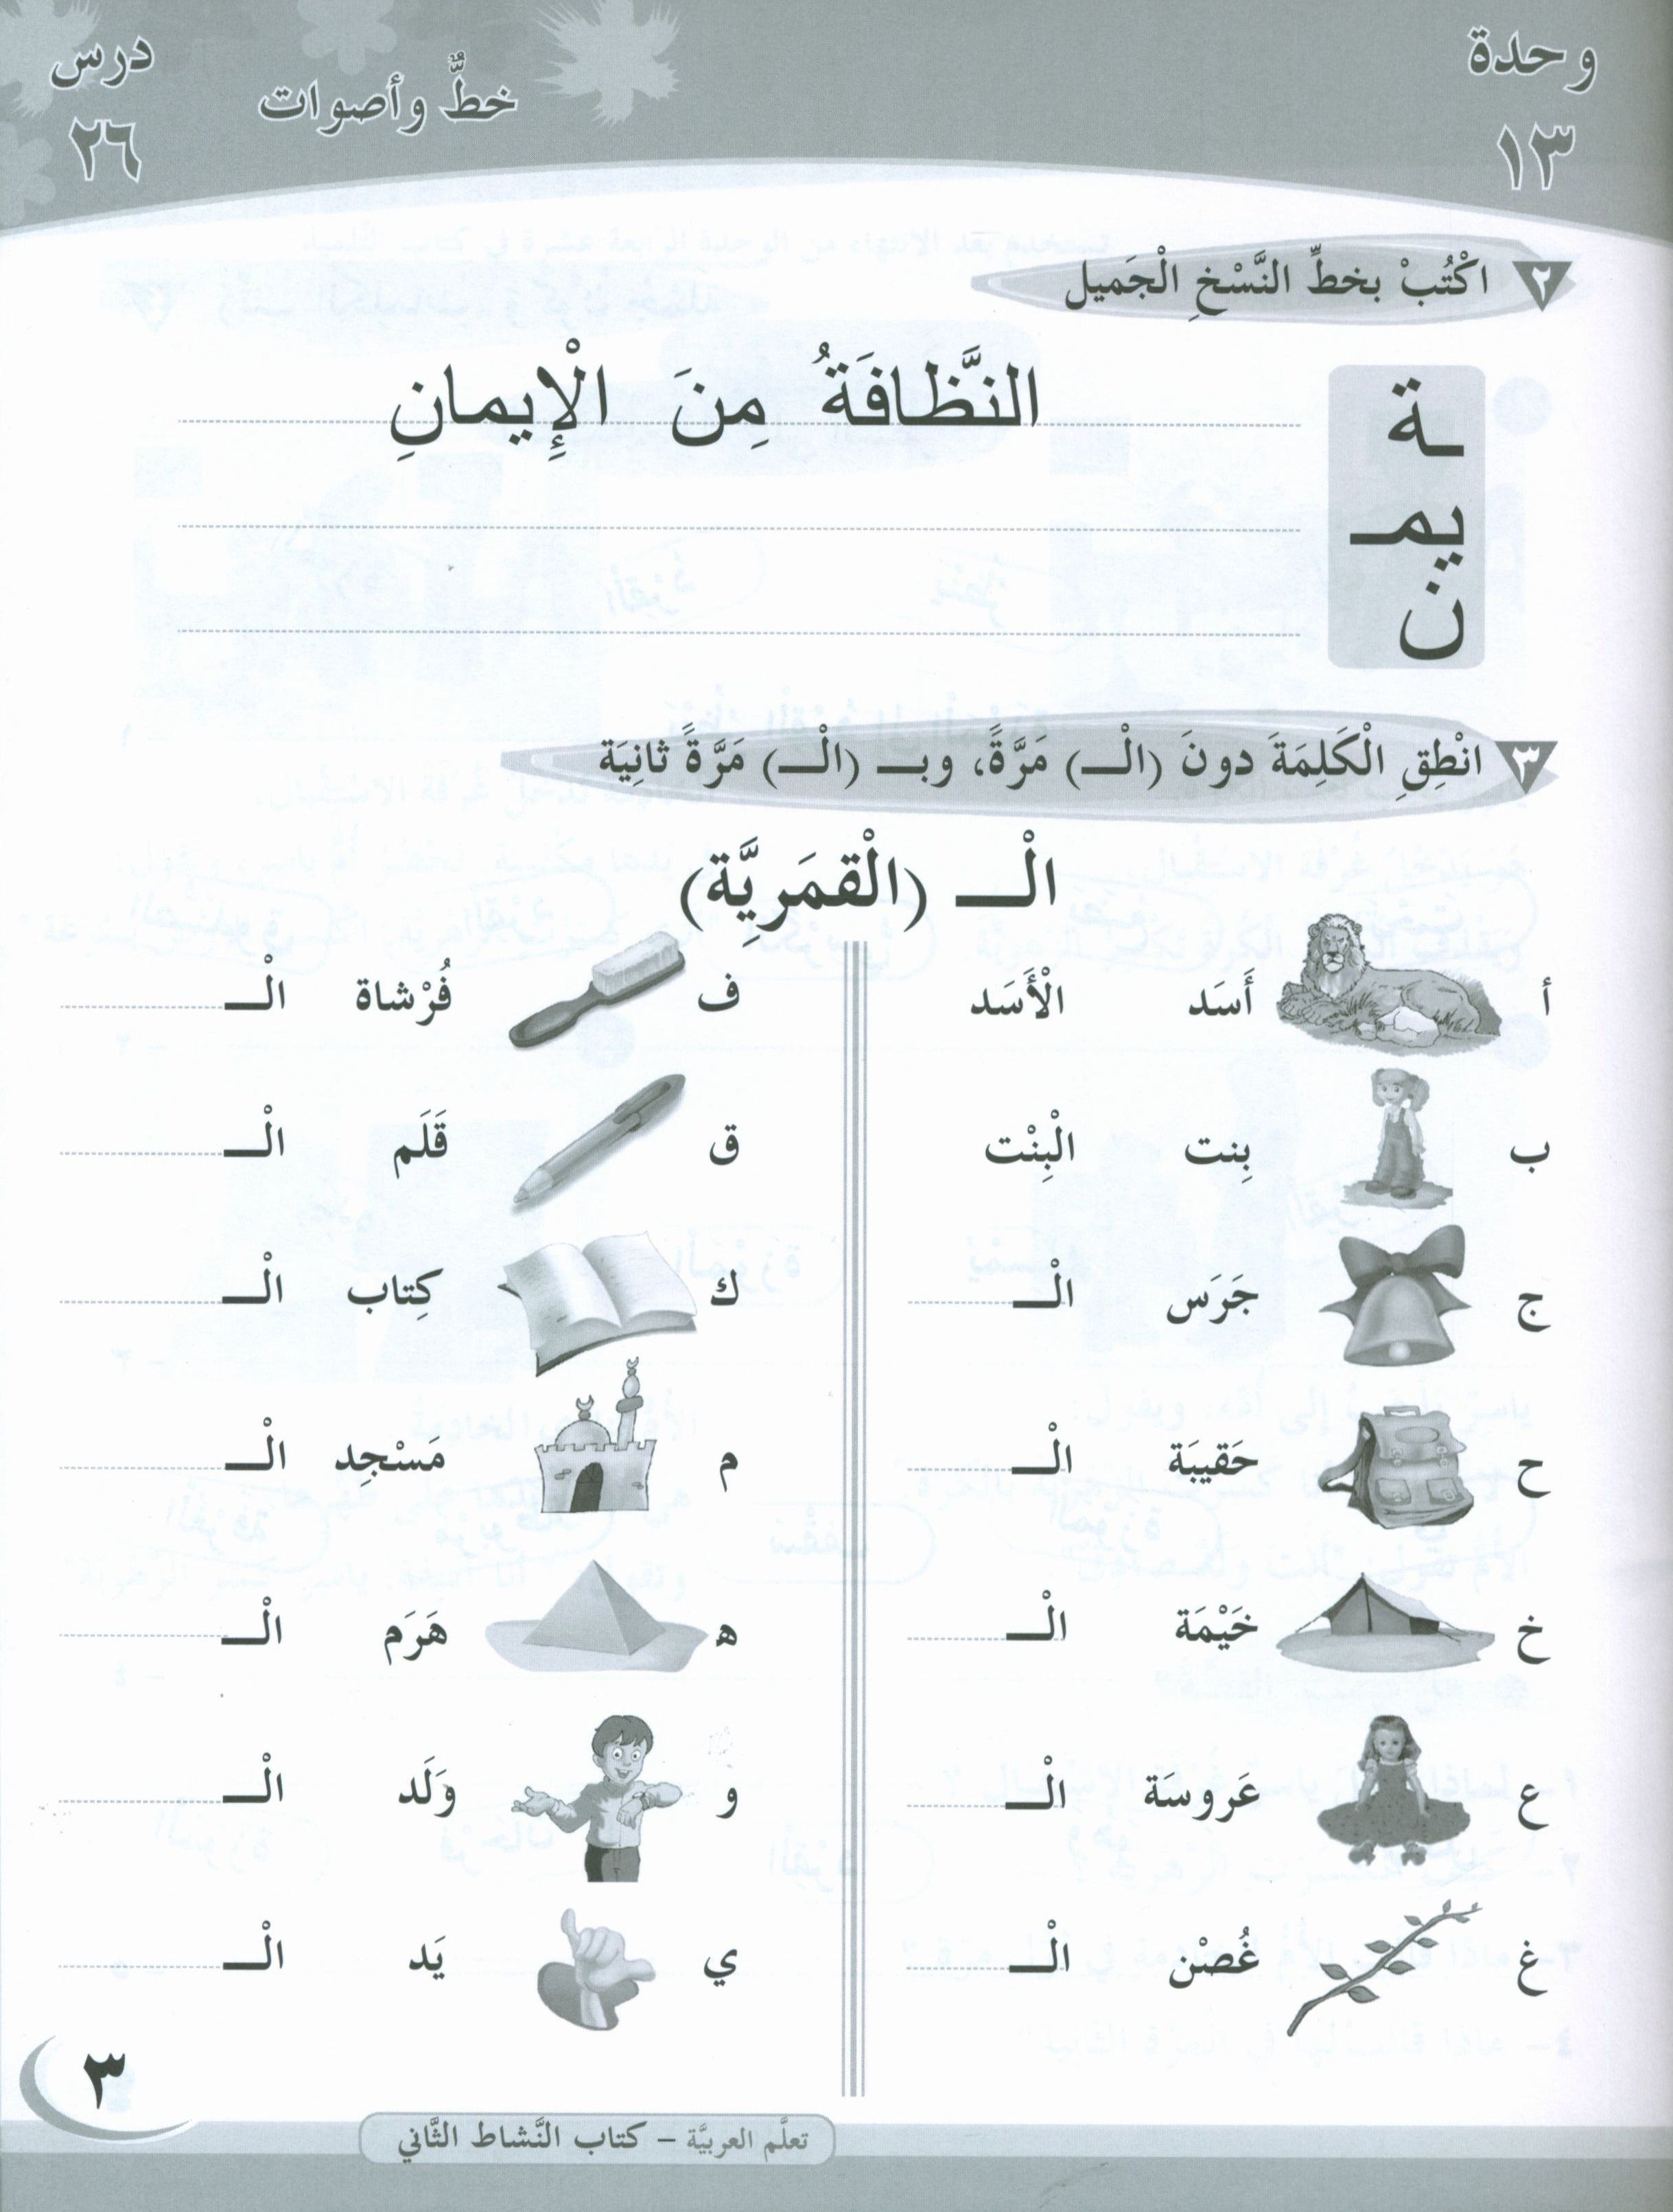 وحدة
١٣
خطٌّ وأصوات
درس
٢٦
٢ اكْتُبْ بخطِّ النَّسْخِ الْجَميل
ـة
يمـ
ن
النَّظافَةُ مِنَ الْإِيمانِ
٣ انْطِقِ الْكَلِمَةَ دونَ (الْـ) مَرَّةً، وبـ (الْـ) مَرَّةً ثانِيَة
الْـ (الْقمَرِيَّة)
أ أَسَد الْأَسَد
ب بِنت الْبِنْت
ج جَرَس الْـ
ح حَقيبَة الْـ
خ خَيْمَة الْـ
ع عَروسَة الْـ
غ غُصْن الْـ
ف فُرْشاة الْـ
ق قَلَم الْـ
ك كِتاب الْـ
م مَسْجِد الْـ
ه هَرَم الْـ
و وَلَد الْـ
ي يَد الْـ
تعلَّم العربيَّة – كتاب النَّشاط الثَّاني
٣